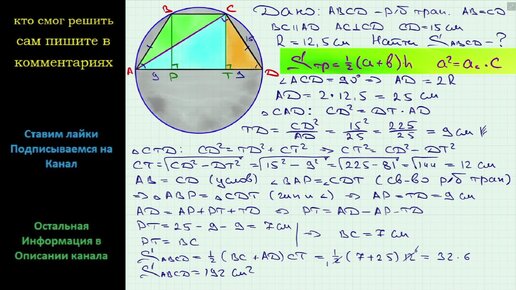 кто смог решить
сам пишите в
комментариях
Ставим лайки
Подписываемся на
Канал
Остальная
Информация в
Описании канала
B C
15
A 9 P T 9 D
Дано: ABCD – р/б трап. AB=CD
BC∥AD AC⊥CD CD=15см
R=12,5см Найти S ABCD – ?
S тр = ½(a+b)h a²=a_c·c
∠ACD=90° ⇒ AD=2R
AD=2·12,5=25см
△CAD: CD²=DT·AD
TD=CD²/AD=15²/25=225/25=9см
△CTD: CD²=TD²+CT² ⇒ CT²=CD²–DT²
CT=√CD²–DT²=√15²–9²=√225–81=√144=12см
AB=CD (услов) ∠BAP=∠CDT (св-во р/б трап)
⇒ △ABP=△CDT (гип и ∠) ⇒ AP=TD=9см
AD=AP+PT+TD ⇒ PT=AD–AP–TD
PT=25–9–9=7см ⇒ BC=7см
PT=BC
S ABCD=½(BC+AD)CT=½(7+25)12=32·6
S ABCD=192см²